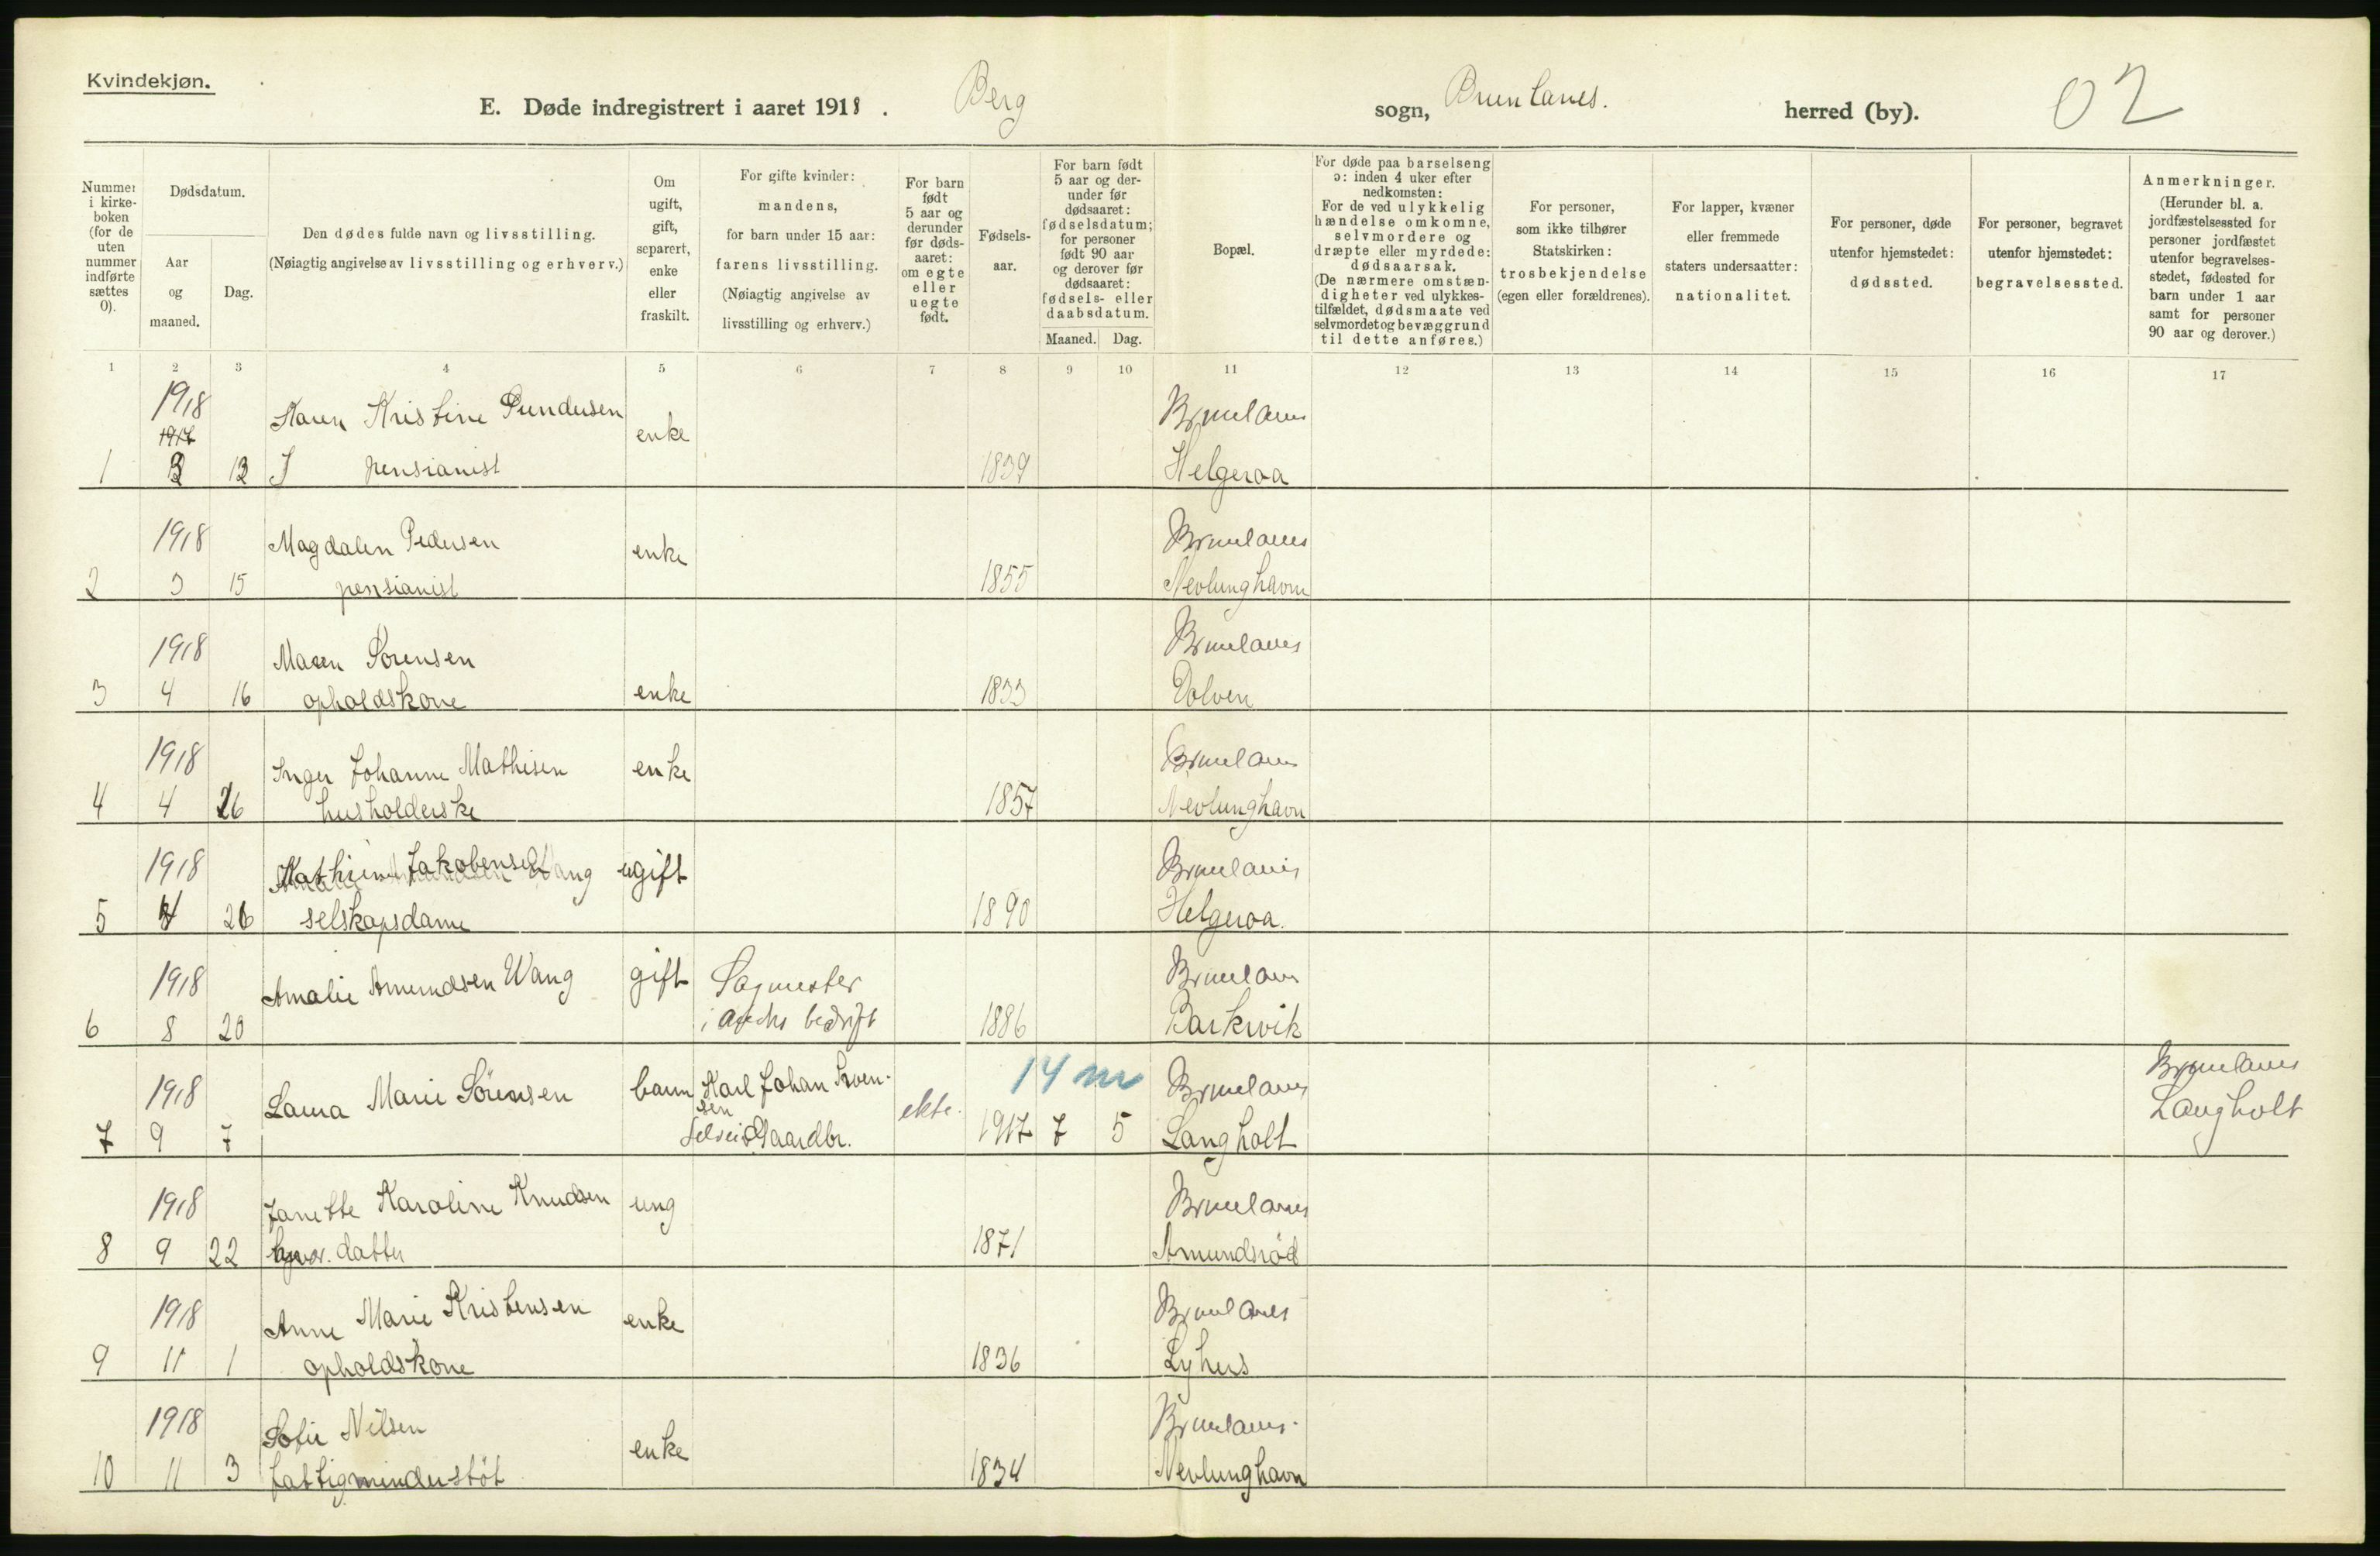 Kvindekjøn.
E. Døde indregistrert i aaret 1918. Berg sogn, Brunlanes. herred (by). 02
Nummer i kirke-boken (for de uten nummer indførte sættes 0).
Dødsdatum.
Aar og maaned.
Dag.
Den dødes fulde navn og livsstilling.
(Nøiagtig angivelse av livsstilling og erhverv.)
Om ugift, gift, separert, enke eller fraskilt.
For gifte kvinder: mandens, for barn under 15 aar: farens livsstilling. (Nøiagtig angivelse av livsstilling og erhverv.)
For barn født 5 aar og derunder før døds-aaret: om egte eller uegte født.
Fødsels-aar.
For barn født 5 aar og der-under før dødsaaret: fødselsdatum; for personer født 90 aar og derover før dødsaaret: fødsels- eller daabsdatum.
Maaned. Dag.
Bopæl.
For døde paa barselseng ɔ: inden 4 uker efter nedkomsten: For de ved ulykkelig hændelse omkomne, selvmordere og dræpte eller myrdede: dødsaarsak. (De nærmere omstæn-digheter ved ulykkes-tilfældet, dødsmaate ved selvmordet og bevæggrund til dette anføres.)
For personer, som ikke tilhører Statskirken: trosbekjendelse (egen eller forældrenes).
For lapper, kvæner eller fremmede staters undersaatter: nationalitet.
For personer, døde utenfor hjemstedet: dødssted.
For personer, begravet utenfor hjemstedet: begravelsessted.
Anmerkninger. (Herunder bl. a. jordfæstelsessted for personer jordfæstet utenfor begravelses-stedet, fødested for barn under 1 aar samt for personer 90 aar og derover.)
1 2 3 4 5 6 7 8 9 10 11 12 13 14 15 16 17
1918 Karen Kristine Gundersen Brunlanes
1917 enke
1 3 13 pensianist 1839 Helgeroa
1918 Magdalen Pedersen enke Brunlanes
2 3 15 pensianist 1855 Nevlunghavn
1918 Maren Sørensen Brunlanes
3 4 16 opholdskone enke 1833 Dolven
1918 Inger Johanne Mathisen enke Brunlanes
4 4 26 husholderske 1857 Nevlunghavn
1918 Kathrine Jakobensen ugift Brunlanes
5 4 26 selskapsdame 1890 Helgeroa.
1918 Amalie Amundsen Wang gift Sagmester Brunlanes
6 8 20 i bedrift 1886 Barkevik
1918 Laura Marie Sørensen barn Karl Johan Sørensen ekte. 14 m Brunlanes Brunlanes
7 9 7 Selveid Gaardbr. 1917 7 5 Langholt Langholt
1918 Janette Karoline Knudsen ung Brunlanes
8 9 22 datter 1871 Amundrød
1918 Anne Marie Kristensen enke Brunlanes
9 11 1 opholdskone 1836 Lyhus
1918 Sofie Nilsen enke Brunlanes.
10 11 3 fattigunderstøt 1834 Nevlunghavn